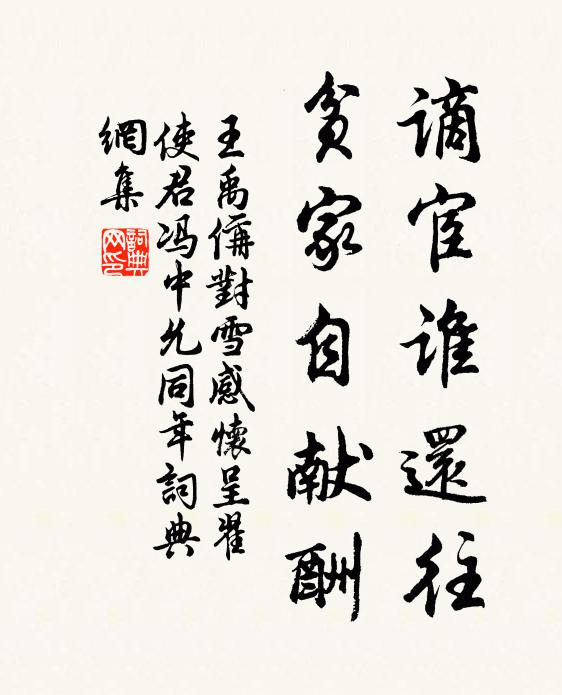 謫宦誰還往
貧家自献酬
王禹偁對雪感懷呈翟
使君冯中允同年詞典
網集
詞典网印